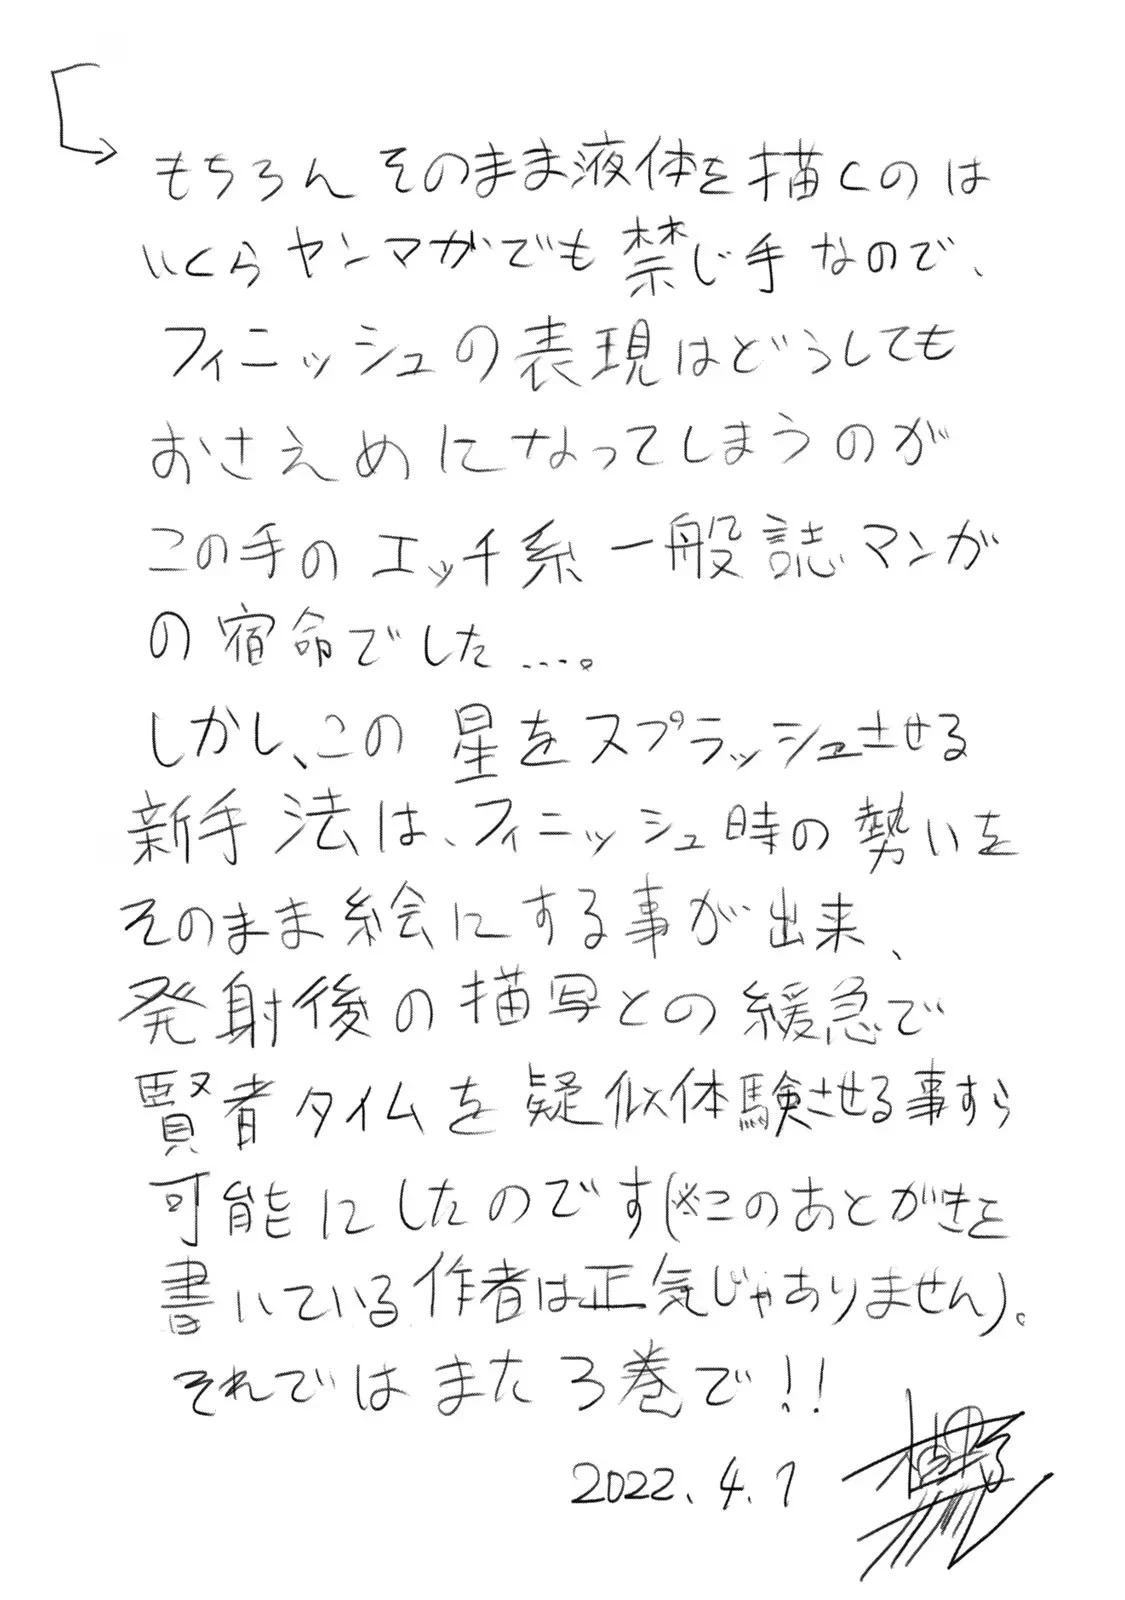 もちろんそのまま液体を描くのは
いくらヤンマガでも禁じ手なので、
フィニッシュの表現はどうしても
おさえめになってしまうのが
この手のエッチ系一般誌マンガ
の宿命でした…。
しかし、この星をスプラッシュさせる
新手法は、フィニッシュ時の勢いを
そのまま絵にする事が出来、
発射後の描写との緩急で
賢者タイムを疑似体験させる事すら
可能にしたのです(※このあとがきを
書いている作者は正気じゃありません)。
それではまた3巻で!!
2022.4.1